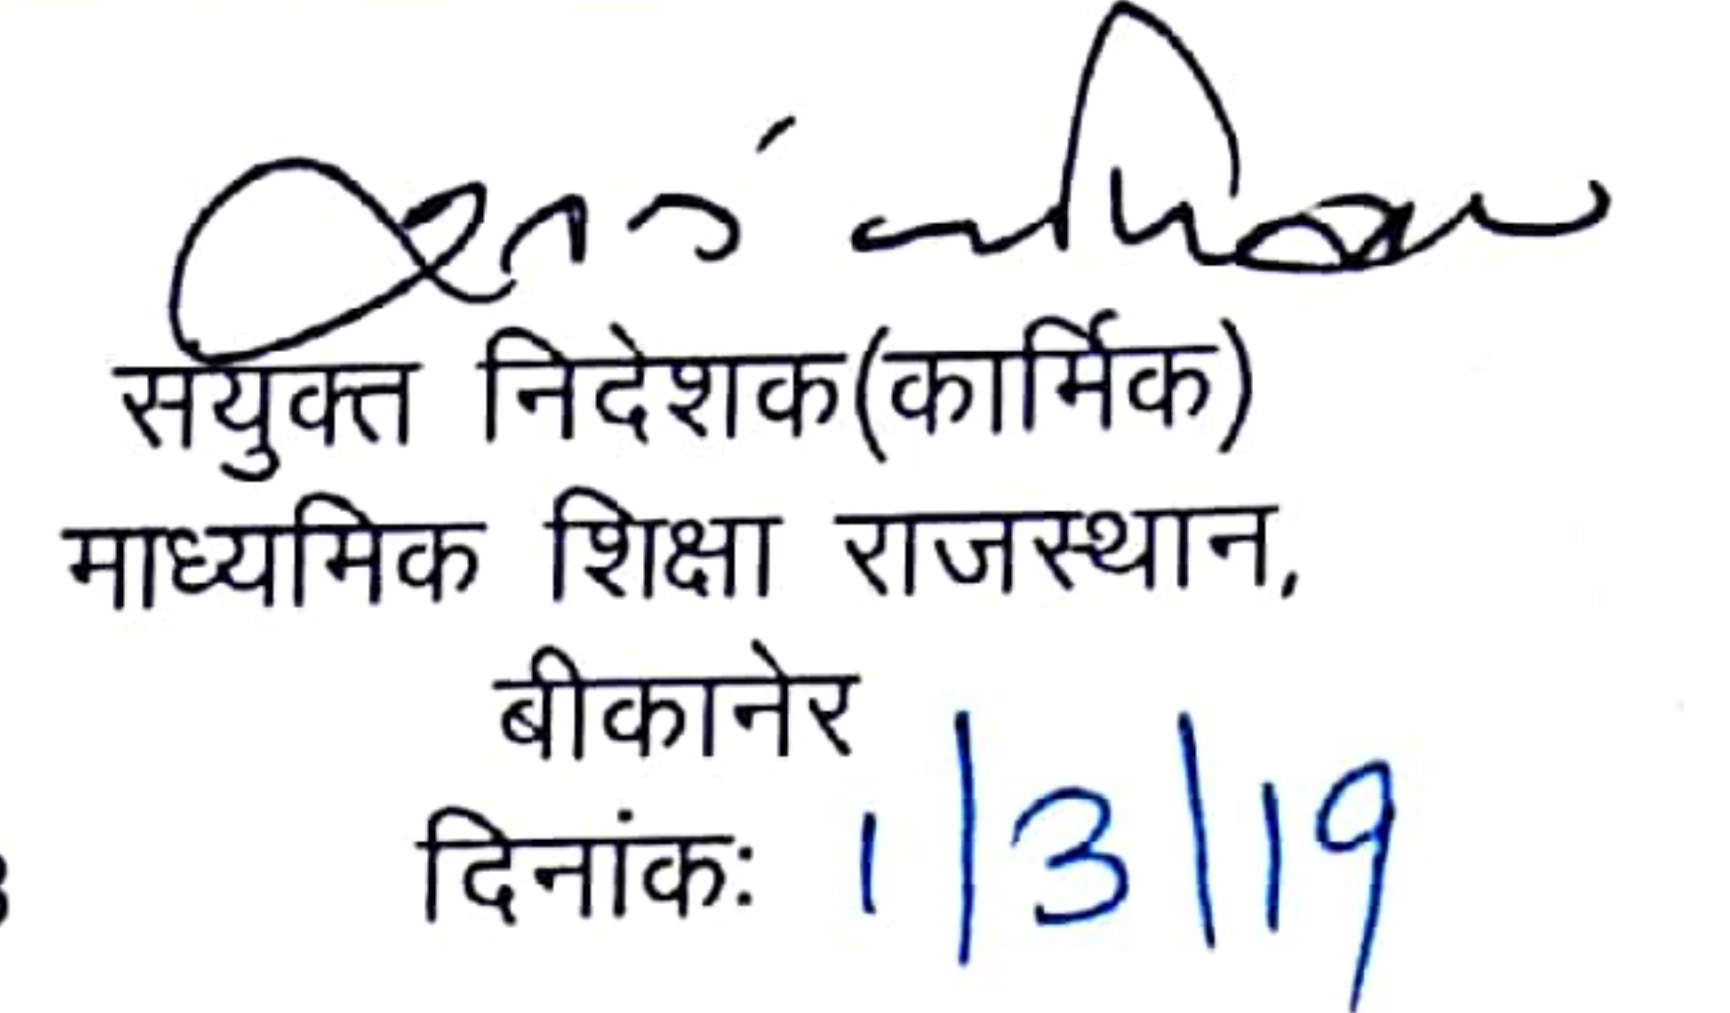 सयुक्त निदेशक(कार्मिक)
माध्यमिक शिक्षा राजस्थान,
बीकानेर
दिनांक: 1/3/19